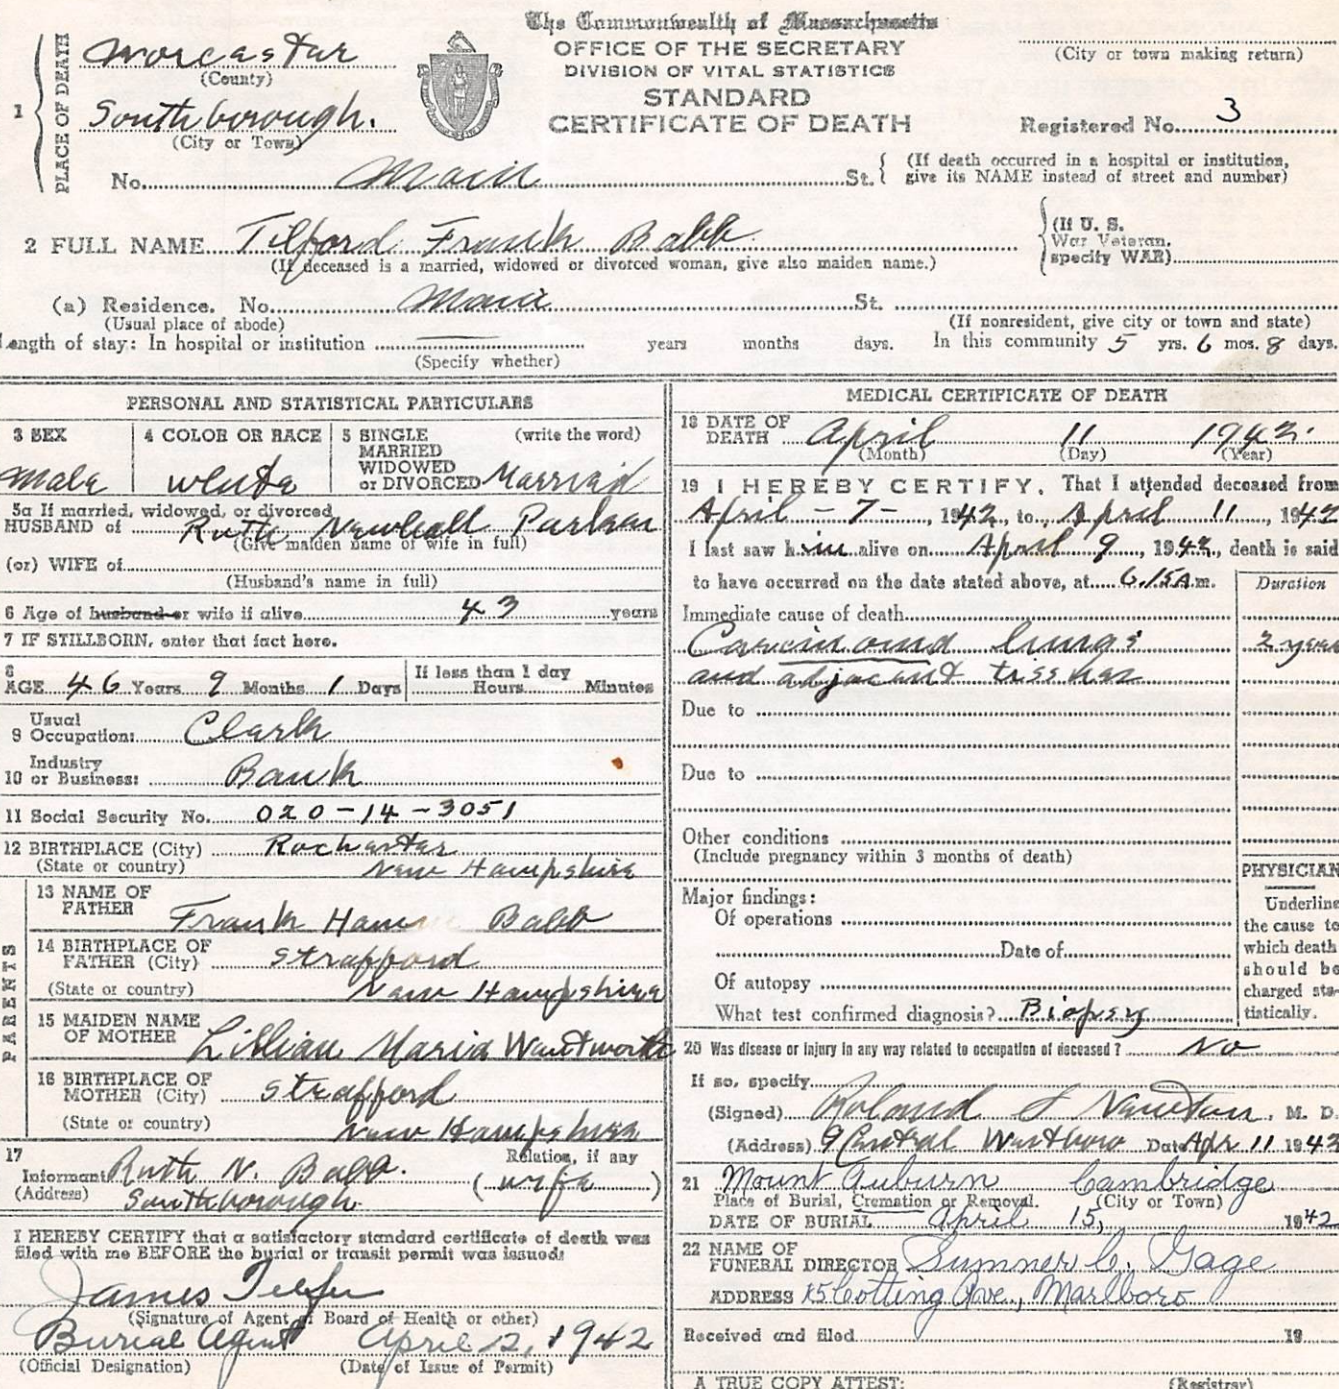 The Commonwealth of Massachusetts
OFFICE OF THE SECRETARY
DIVISION OF VITAL STATISTICS
STANDARD
CERTIFICATE OF DEATH
(City or town making return)
Registered No. 3
1 PLACE OF DEATH
Worcester
(County)
Southborough.
(City or Town)
No. Main St. (If death occurred in a hospital or institution, give its NAME instead of street and number)
2 FULL NAME Tilford Frank Babb
(If deceased is a married, widowed or divorced woman, give also maiden name.)
(If U. S. War Veteran, specify WAR)
(a) Residence. No. Main St.
(Usual place of abode)
(If nonresident, give city or town and state)
Length of stay: In hospital or institution years months days. In this community 5 yrs. 6 mos. 8 days.
(Specify whether)
PERSONAL AND STATISTICAL PARTICULARS
3 SEX
Male
4 COLOR OR RACE
White
5 SINGLE MARRIED WIDOWED or DIVORCED (write the word)
Married
5a If married, widowed, or divorced
HUSBAND of Ruth Newhall
(Give maiden name of wife in full)
(or) WIFE of
(Husband's name in full)
6 Age of husband or wife if alive 43 years
7 IF STILLBORN, enter that fact here.
8 AGE 46 Years 9 Months 1 Days
If less than 1 day
Hours Minutes
9 Usual Occupation: Clerk
10 Industry or Business: Bank
11 Social Security No. 020-14-3051
12 BIRTHPLACE (City) Rochester
(State or country) New Hampshire
PARENTS
13 NAME OF FATHER Frank Ham Babb
14 BIRTHPLACE OF FATHER (City) Strafford
(State or country) New Hampshire
15 MAIDEN NAME OF MOTHER Lillian Maria Wentworth
16 BIRTHPLACE OF MOTHER (City) Strafford
(State or country) New Hampshire
17 Informant Ruth N. Babb. Relation, if any (wife)
(Address) Southborough
I HEREBY CERTIFY that a satisfactory standard certificate of death was filed with me BEFORE the burial or transit permit was issued:
James Telfer
(Signature of Agent of Board of Health or other)
Burial Agent April 12, 1942
(Official Designation) (Date of Issue of Permit)
MEDICAL CERTIFICATE OF DEATH
18 DATE OF DEATH April 11 1942.
(Month) (Day) (Year)
19 I HEREBY CERTIFY, That I attended deceased from
April - 7 -, 1942, to April 11, 1942
I last saw him alive on April 9, 1942, death is said
to have occurred on the date stated above, at 6.15 A.m.
Duration
Immediate cause of death
Carcinoma lungs 2 years
and adjacent tissues
Due to
Due to
Other conditions
(Include pregnancy within 3 months of death)
Major findings:
Of operations
Date of
Of autopsy
What test confirmed diagnosis? Biopsy
PHYSICIAN
Underline the cause to which death should be charged statistically.
20 Was disease or injury in any way related to occupation of deceased? No
If so, specify
(Signed) Roland S Newton, M. D.
(Address) 9 Central Westboro Date Apr 11 1942
21 Mount Auburn Cambridge
Place of Burial, Cremation or Removal. (City or Town)
DATE OF BURIAL April 15, 1942
22 NAME OF FUNERAL DIRECTOR Sumner C. Gage
ADDRESS 15 Cotting Ave., Marlboro
Received and filed 19
A TRUE COPY ATTEST: (Registrar)